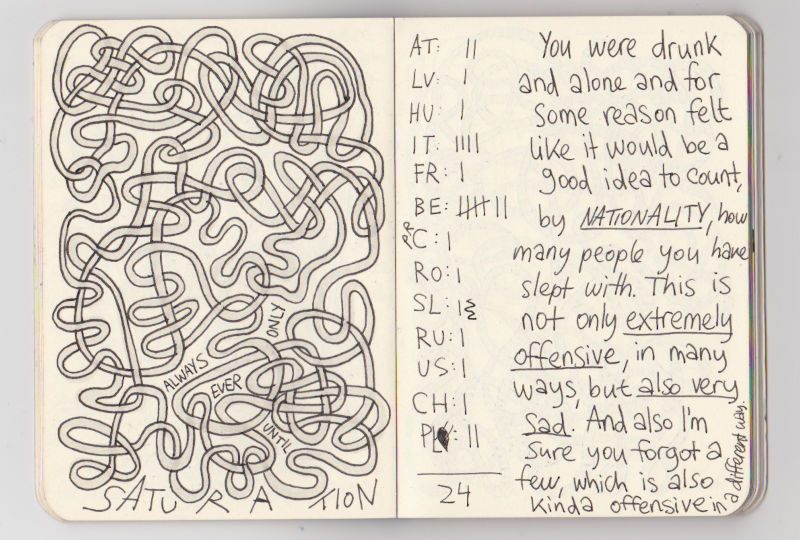 ALWAYS
ONLY
EVER
UNTIL
SATURATION
AT: ||
LV: |
HU: |
IT: ||||
FR: |
BE: |||| ||
C: |
RO: |
SL: |
RU: |
US: |
CH: |
||
24
You were drunk
and alone and for
some reason felt
like it would be a
good idea to count,
by NATIONALITY, how
many people you have
slept with. This is
not only extremely
offensive, in many
ways, but also very
sad. And also I'm
sure you forgot a
few, which is also
kinda offensive in
a different way.